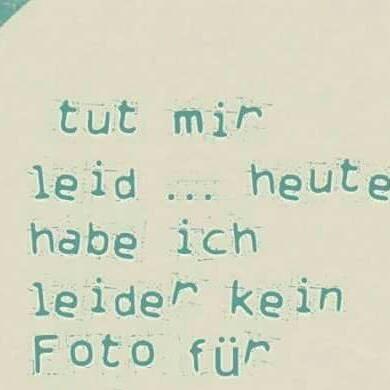 tut mir
leid ... heute
habe ich
leider kein
Foto für